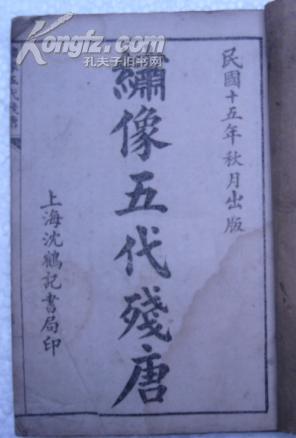 民國十五年秋月出版
繡像五代殘唐
上海沈鶴記書局印
Kongfz.com
孔夫子旧书网